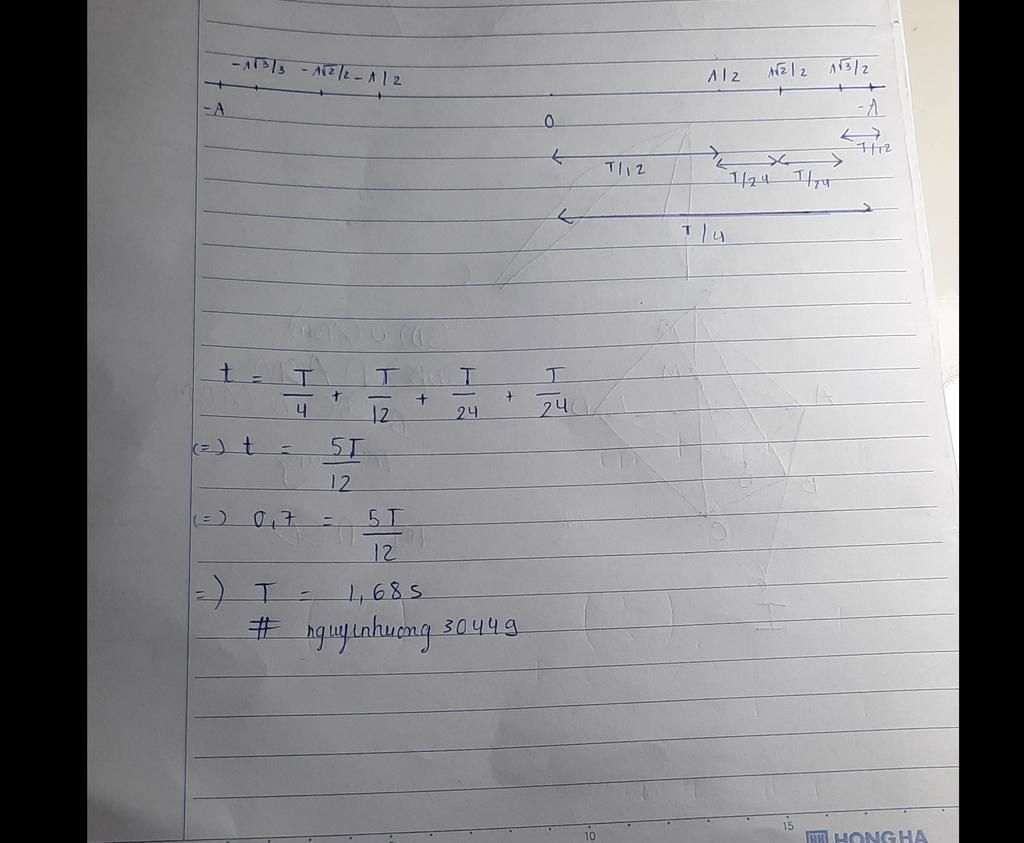 -A√3/3 -A√2/2 -A/2 A/2 A√2/2 A√3/2
-A O -A
T/12 T/24 T/24 T/12
T/4
t = T/4 + T/12 + T/24 + T/24
(=) t = 5T/12
(=) 0,7 = 5T/12
=) T = 1,68s
# nguyinhuong 30449
10 15
HONG HA